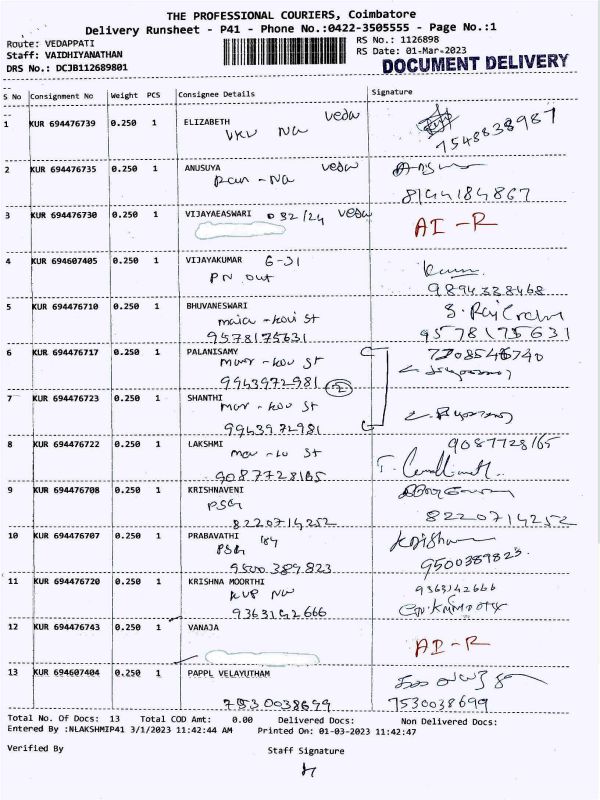 THE PROFESSIONAL COURIERS, Coimbatore
Delivery Runsheet - P41 - Phone No.:0422-3505555 - Page No.:1
Route: VEDAPPATI
RS No.: 1126898
Staff: VAIDHIYANATHAN
RS Date: 01-Mar-2023
DRS No.: DCJB112689801
DOCUMENT DELIVERY
S No Consignment No Weight PCS Consignee Details Signature
1 KUR 694476739 0.250 1 ELIZABETH veda
VKV Na 7548838987
2 KUR 694476735 0.250 1 ANUSUYA veda
Na 8144184867
3 KUR 694476730 0.250 1 VIJAYAEASWARI D 32/24 veda AI-R
4 KUR 694607405 0.250 1 VIJAYAKUMAR G-31
PN out 9894338468
5 KUR 694476710 0.250 1 BHUVANESWARI
St
9578175631 9578175631
6 KUR 694476717 0.250 1 PALANISAMY 7208546740
St
9943972981 2
7 KUR 694476723 0.250 1 SHANTHI
St
9943972981
8 KUR 694476722 0.250 1 LAKSHMI 9087728165
St
9087728165
9 KUR 694476708 0.250 1 KRISHNAVENI
PSG
8220714252 8220714252
10 KUR 694476707 0.250 1 PRABAVATHI
PSG
9500 389823 9500389823
11 KUR 694476720 0.250 1 KRISHNA MOORTHI 9363142666
KVP Na
9363142666
12 KUR 694476743 0.250 1 VANAJA AI-R
13 KUR 694607404 0.250 1 PAPPL VELAYUTHAM
7530038699 7530038699
Total No. Of Docs: 13 Total COD Amt: 0.00 Delivered Docs: Non Delivered Docs:
Entered By :NLAKSHMIP41 3/1/2023 11:42:44 AM Printed On: 01-03-2023 11:42:47
Verified By Staff Signature